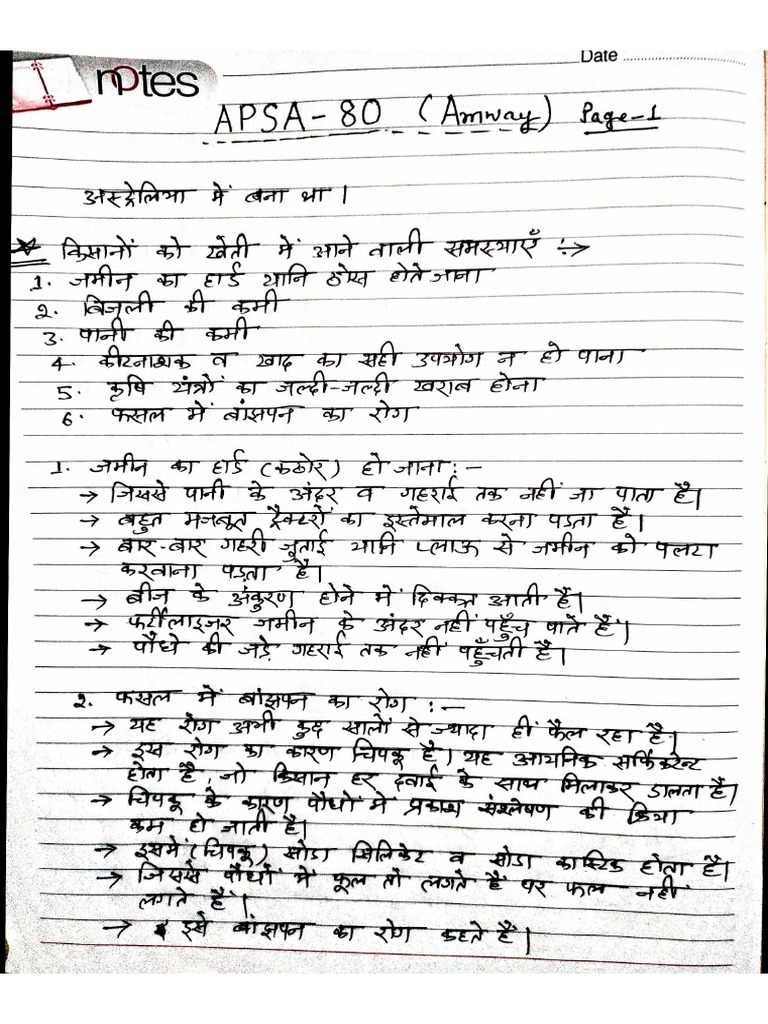 Date
notes
APSA-80 (Amway) Page-1
अस्ट्रेलिया में बना था।
किसानों को खेती में आने वाली समस्याएँ :->
1. जमीन का हार्ड यानि ठोस होते जाना
2. बिजली की कमी
3. पानी की कमी
4. कीटनाशक व खाद का सही उपयोग न हो पाना
5. कृषि यंत्रों का जल्दी-जल्दी खराब होना
6. फसल में बांझपन का रोग
1. जमीन का हार्ड (कठोर) हो जाना :-
→ जिससे पानी के अंदर व गहराई तक नहीं जा पाता है।
→ बहुत मजबूत ट्रैक्टरों का इस्तेमाल करना पडता है।
→ बार-बार गहरी जुताई यानि प्लाऊ से जमीन को पलटा
करवाना पडता है।
→ बीज के अंकुरण होने में दिक्कत आती है।
→ फर्टीलाइजर जमीन के अंदर नहीं पहुँच पाते हैं।
→ पौधे की जड़े गहराई तक नहीं पहुँचती है।
2. फसल में बांझपन का रोग :-
→ यह रोग अभी कुछ सालों से ज्यादा हीं फैल रहा है।
→ इस रोग का कारण चिपकू है। यह आयनिक सर्फिकटेन्ट
होता है, जो किसान हर दवाई के साथ मिलाकर डालता है।
→ चिपकू के कारण पौधों में प्रकाश संश्लेषण की क्रिया
कम हो जाती है।
→ इसमें (चिपकू) सोडा सिलिकेट व सोडा कास्टिक होता है।
→ जिससे पौधों में फूल तो लगते हैं पर फल नहीं
लगते हैं।
→ इसे बांझपन का रोग कहते हैं।